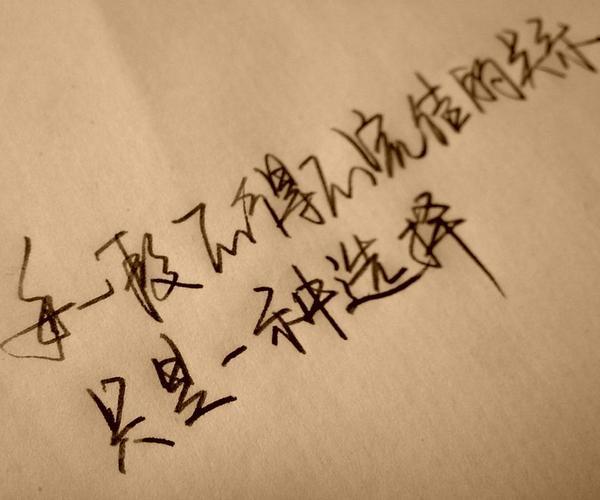 每一段不得不的关系
只是一种选择